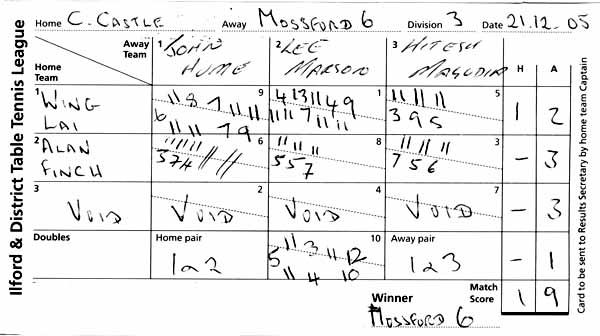 Ilford & District Table Tennis League
Home C. CASTLE Away MOSSFORD 6 Division 3 Date 21.12.05
Away Team 1 JOHN HUME 2 LEE MARSON 3 HITESH H A
Home Team
1 WING LAI 9 1 5 1 2
11 8 7 11 11
6 11 11 7 9
4 13 11 4 9
11 11 7 11 11
11 11 11
3 9 5
2 ALAN FINCH 6 8 3 - 3
11 11 11
5 7 4
11 11 11
5 5 7
11 11 11
7 5 6
3 VOID 2 VOID 4 VOID 7 VOID - 3
Doubles Home pair 1 & 2 10 Away pair 1 & 3 - 1
11 3 11 12
5 11 4 10
Winner MOSSFORD 6 Match Score 1 9
Card to be sent to Results Secretary by home team Captain